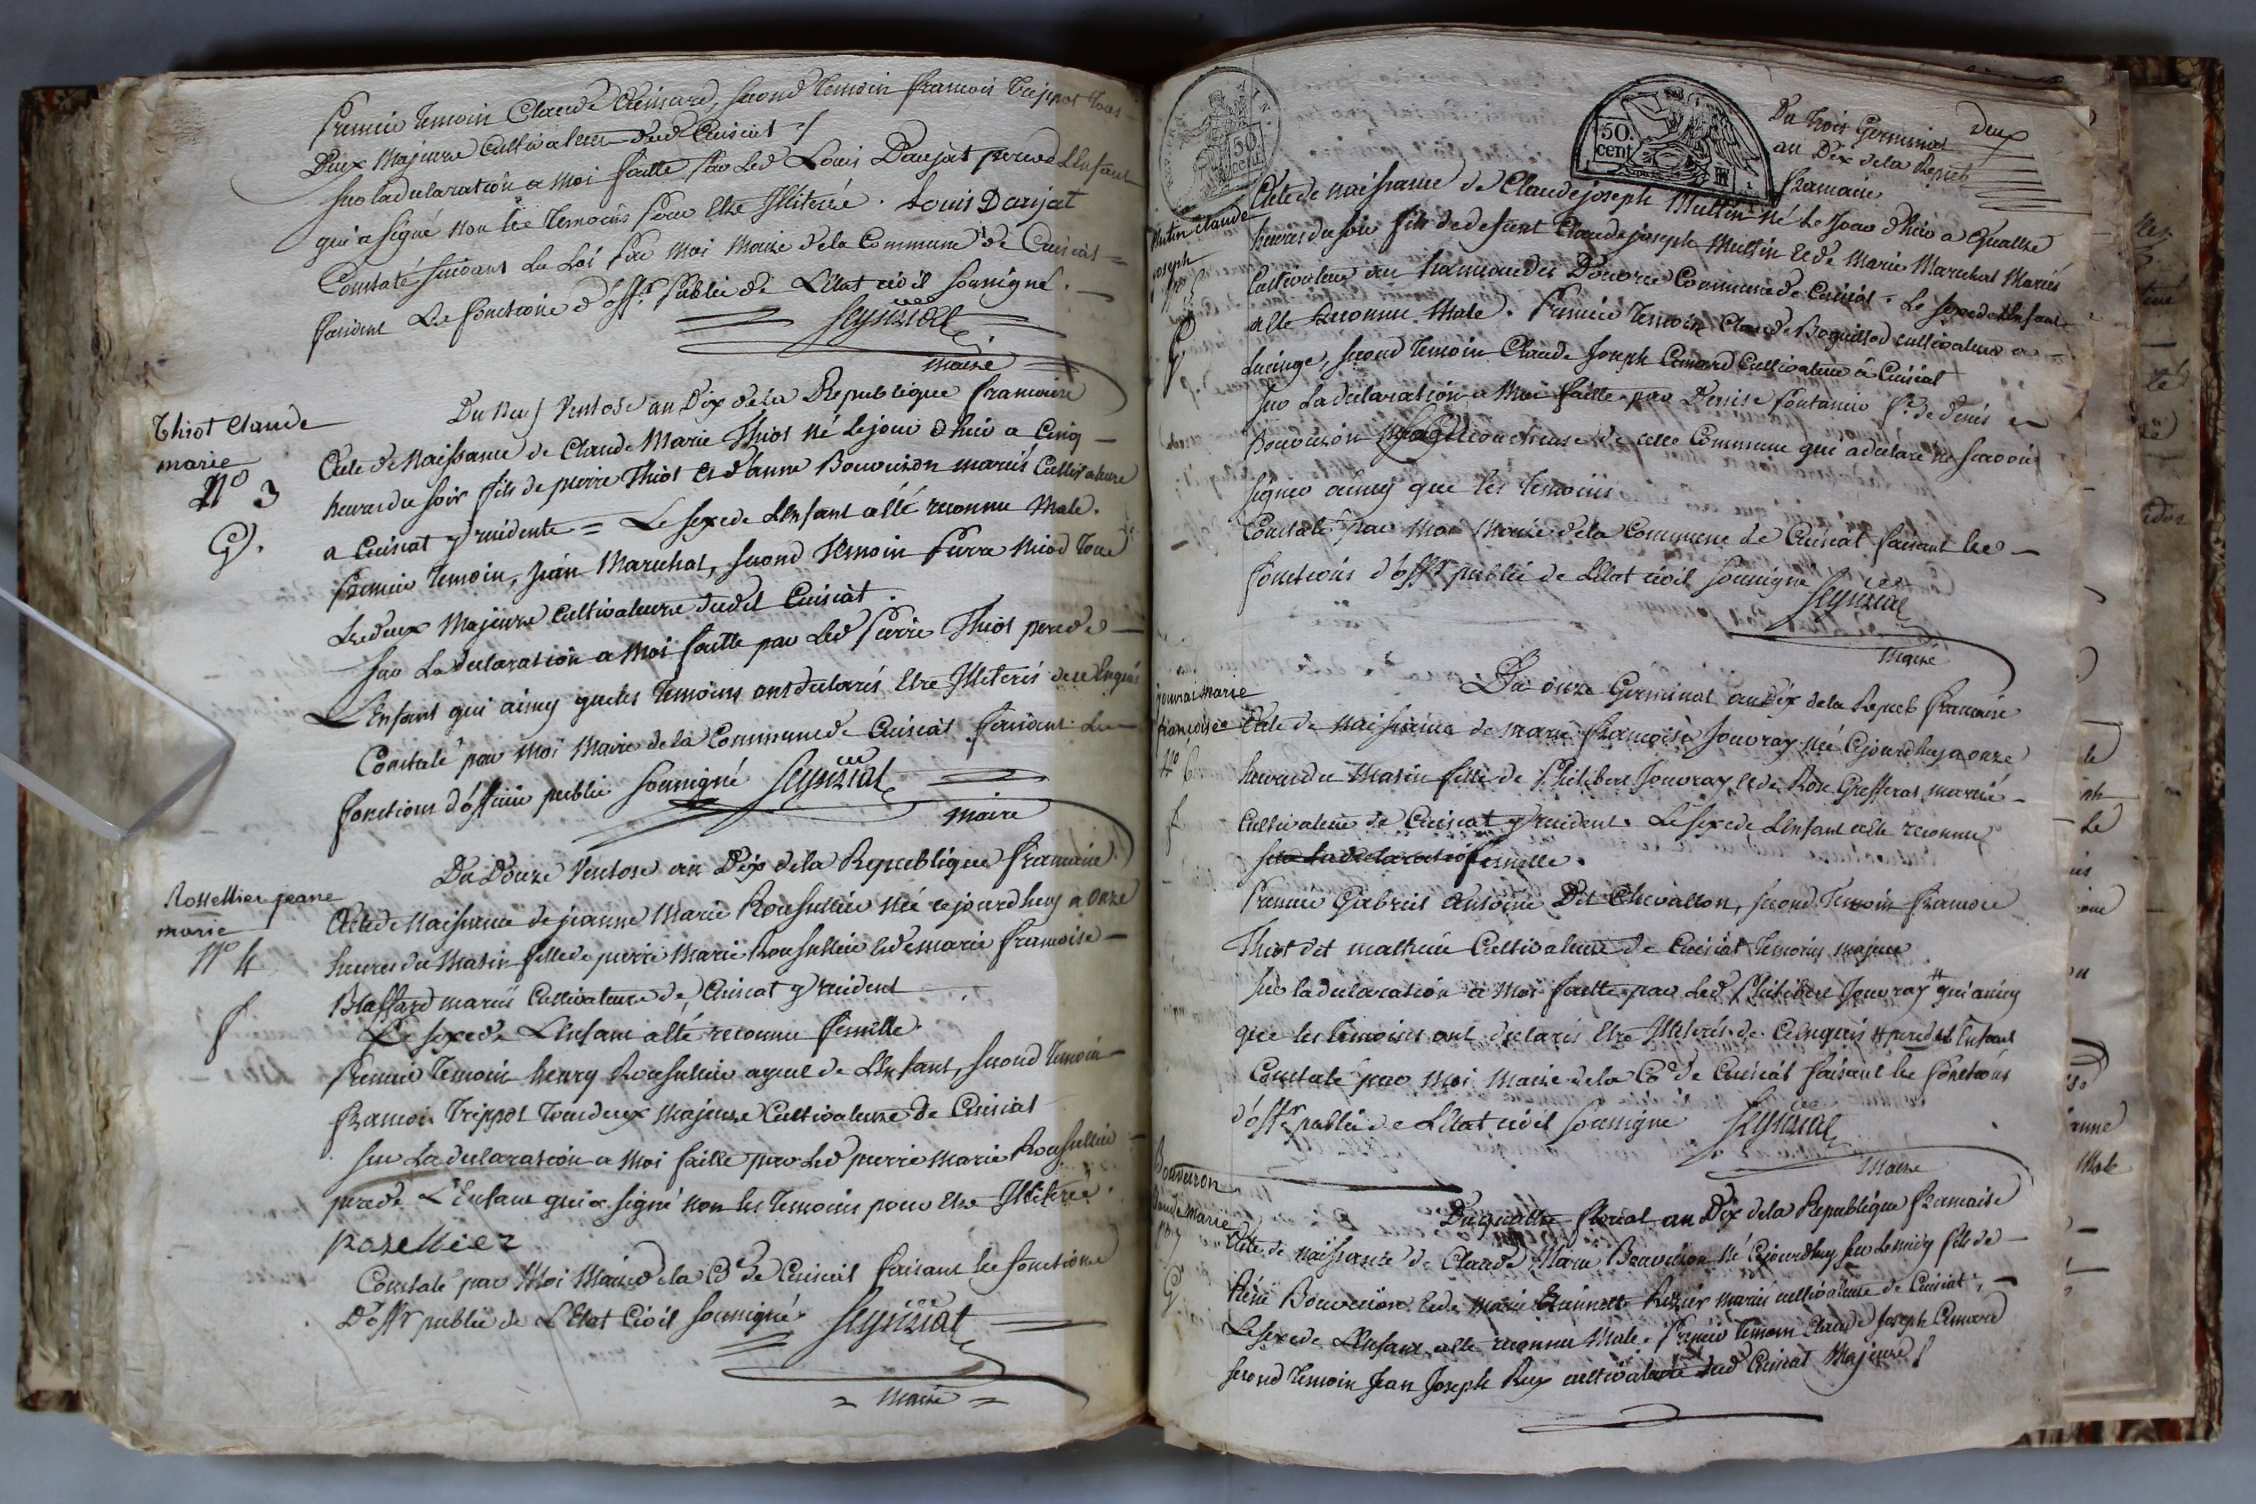 Premier temoin Claude Ruinard, second temoin francois Trippot tous
Deux Majeurs Cultivateurs dud Cuisiat /
Sur la declaration a Moi faitte par Led Louis Daujat pere de L'Enfant
qui a signé non les Temoins pour Etre Illiteré . Louis Daujat
Constaté suivant La Loi par moi Maire dela Commune de Cuisiat =
faisant Les fonctions d'offr. public de L'Etat civil soussigné .
maire
Thiot Claude
marie
N° 3
G.
Du Neuf Ventose an Dix dela Republique francaise
Acte de Naissance de Claude Marie Thiot né le jour d'hier a Cinq
heures du soir fils de pierre Thiot et d'anne Bouvuison mariés Cultivateurs
a Cuisiat y residents = Le sexe de L'Enfant a été reconnu Male.
Premier Temoin, Jean Marechal, second Temoin Pierre Niod Tous
Les deux Majeurs Cultivateurs dudit Cuisiat .
Sur La declaration a Moi faitte par Led Pierre Thiot pere de
L'Enfant qui ainsy que les Temoins ont declarés Etre Illiterés de ce Enquis
Constaté par Moi Maire dela Commune de Cuisiat faisant Les
fonctions d'officier public soussigné
maire
Rossellier jeane
marie
N° 4
f
Du Douze Ventose an Dix dela Republique francaise
Acte de Naissance de jeanne Marie Roussellier née cejourd'huy a onze
heures du Matin fille de pierre Marie Roussellier et de marie francoise
Blaffard mariés Cultivateurs de Cuisiat y resident
Le sexe de L'Enfant a été reconnu femelle.
Premier Temoin henry Roussellier ayeul de L'Enfant, second temoin
francois Trippot Tous deux majeurs Cultivateurs de Cuisiat
Sur La declaration a Moi faitte par Led pierre marie Roussellier
pere de L'Enfant qui a signé non les Temoins pour Etre Illiteré.
Rozellier
Constaté par Moi Maire dela Cne de Cuisiat faisant les fonctions
D'offr public de L'Etat Civil soussigné
= Maire =
50.
cent
50
cent
deux
Du Trois Germinal
an Dix dela Repub
francaise
Mutin Claude
joseph
G
Acte de naissance de Claude joseph Muttin né Le Jour d'hier a Quattre
heures du soir fils de defunt Claude joseph Muttin et de Marie Marechal Mariés
Cultivateurs au hameau des Communede Cuisiat . Le sexe de L'Enfant
a Ete Reconnu Male . Premier temoin Claude cultivateur a
second Temoin Claude Joseph Cultivateur a Cuisiat
Sur La declaration a Moi faitte par Denise fontanier fe. de denis
Bouvuison de cette Commune qui a declaré ne scavoir
signer ainsy que les temoins
Constaté par Moi Maire dela Commune de Cuisiat faisant les
fonctions d'offr public de L'Etat civil soussigné
Maire
jouvrai marie
francoise
N° 6
f
Du onze Germinal an Dix dela Repub francaise
Acte de Naissance de marie francoise Jouvray née cejourd'huy a onze
heures du Matin fille de Philibert Jouvray et de Rose Grefferat mariés
Cultivateurs de Cuisiat y resident . Le sexe de L'Enfant a ete reconnu
sur la declaration femelle .
Premier Gabriel Antoine Dit Chevallon, second Temoin francois
Thiot dit mathieu Cultivateurs de Cuisiat Temoins majeur
Sur la declaration a Moi faitte par Led Philibert Jouvray # qui ainsy
que les temoins ont declarés Etre Illiterés de ce Enquis # pere de L'Enfant
Constaté par Moi Maire dela Cne de Cuisiat faisant les fonctions
d'offr. public de L'Etat civil soussigné
Maire
Bouveiron
Claude marie
N° 7
G
Du quattre floreal an Dix dela Republique francaise
Acte de naissance de Claude Marie Bouvuison né cejourd'huy sur Le midy fils de
Réné Bouvuison et de Marie mariés cultivateurs de Cuisiat .
Le sexe de L'Enfant a ete reconnu Male . Premier Temoin Claude Joseph
second Temoin Jean Joseph Rux cultivateurs dud Cuisiat Majeurs /